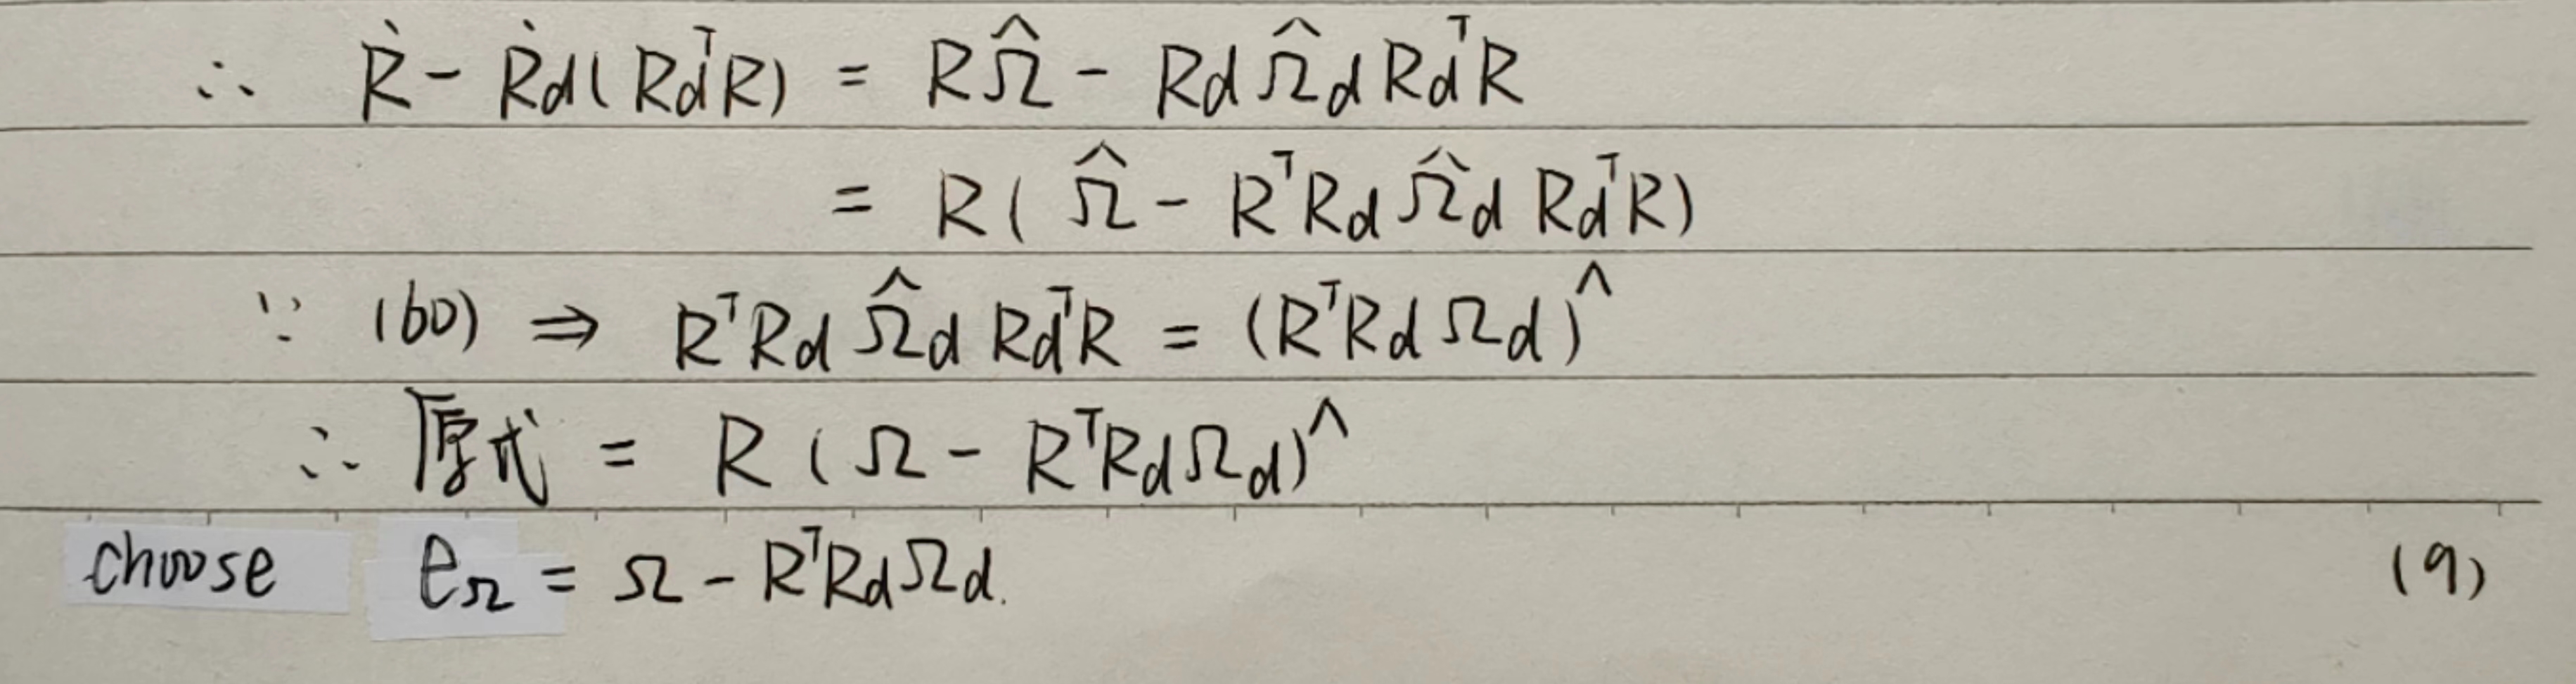 ∴ Ṙ - Ṙd(RdᵀR) = RΩ̂ - RdΩ̂dRdᵀR
= R(Ω̂ - RᵀRdΩ̂dRdᵀR)
∵ (60) ⇒ RᵀRdΩ̂dRdᵀR = (RᵀRdΩd)^
∴ 原式 = R(Ω - RᵀRdΩd)^
choose eΩ = Ω - RᵀRdΩd. (9)